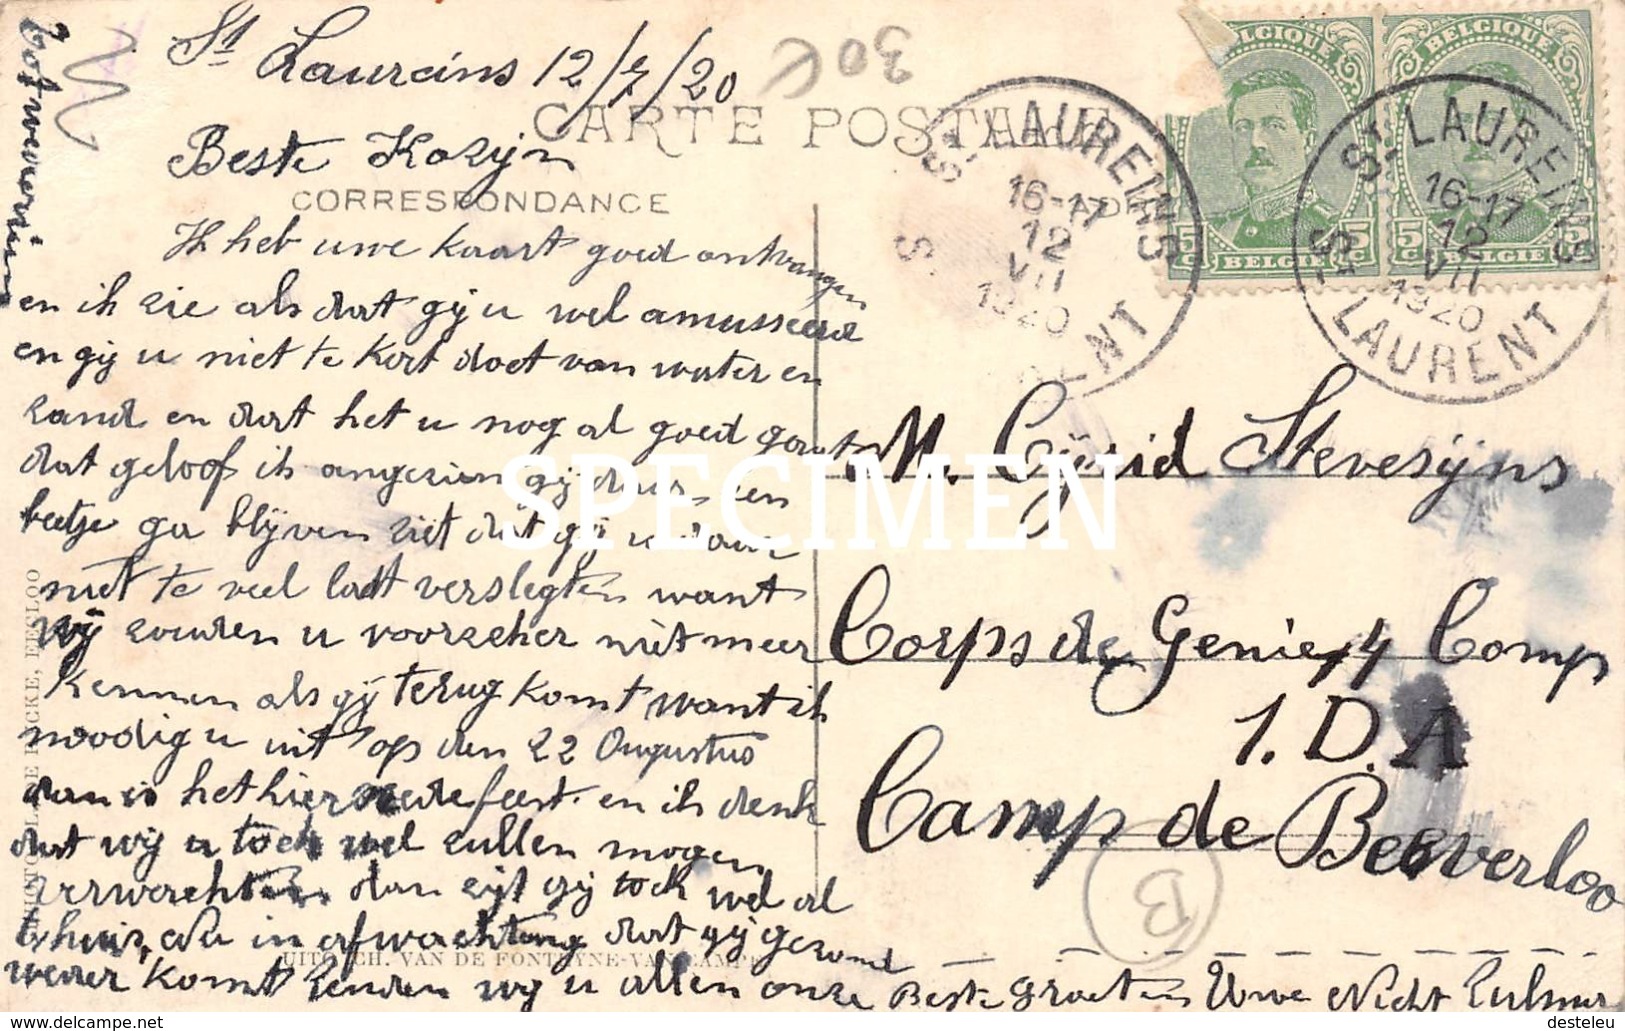 St Laureins 12/7/20
30€
CARTE POSTALE
Beste Kozijn
CORRESPONDANCE
Ik heb uwe kaart goed ontvangen
en ik zie als dat gij u wel amusseerd
en gij u niet te kort doet van water en
zand en dat het u nog al goed gaat
dat geloof ik angezien gij daar een
beetje ga blijven ziet dat gij u daar
niet te veel laat verslegten want
Wij zouden u voorzeker niet meer
kennen als gij terug komt want ik
noodig u uit op den 22 Augustus
dan is het hier feest en ik denk
dat wij u toch wel zullen mogen
verwachten dan zijt gij toch wel al
thuis, Nu in afwachting dat gij gezond
weder komt zenden wij u allen onze Beste groeten Uwe Nicht
Tot wederzien
BELGIQUE
5c BELGIE 5c
BELGIQUE
5c BELGIE 5c
ST LAUREINS
16-17
12
VII
1920
ST LAURENT
ST LAUREINS
16-17
12
VII
1920
ST LAURENT
M. Stevesijns
Corps de Genie, 4 Comp
1. D. A
Camp de Beverloo
B
DE DECKE, EECLOO
UITG. CH. VAN DE FONTEYNE-VAN CAMPE
SPECIMEN
(c) delcampe.net
desteleu